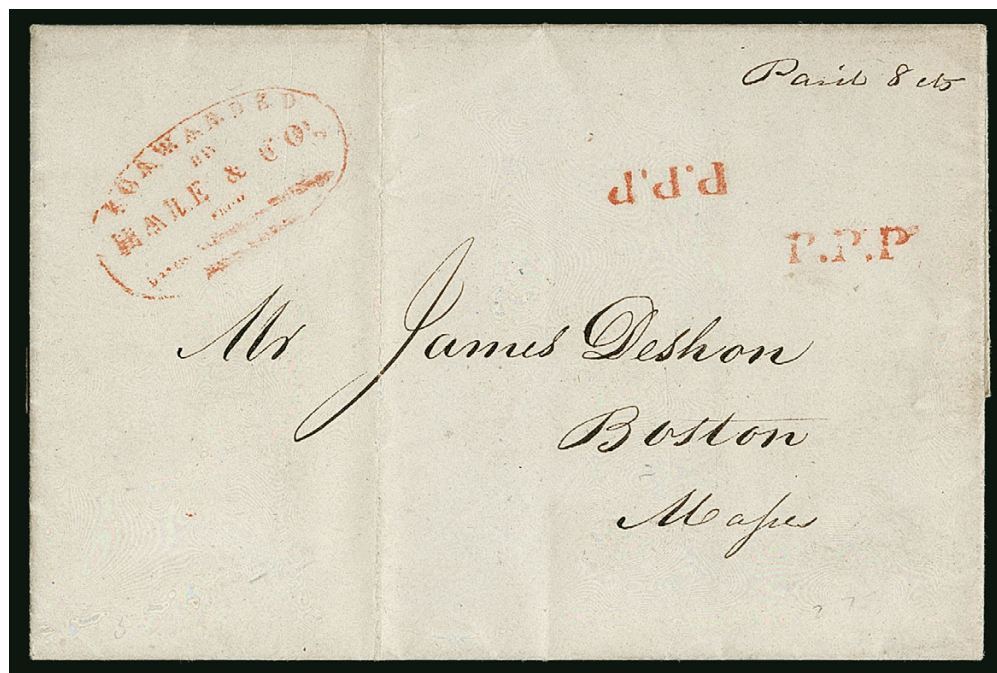 Paid 8 cts
FORWARDED
BY
HALE & CO.
FROM
P.P.P
P.P.P
Mr James Deshon
Boston
Mass